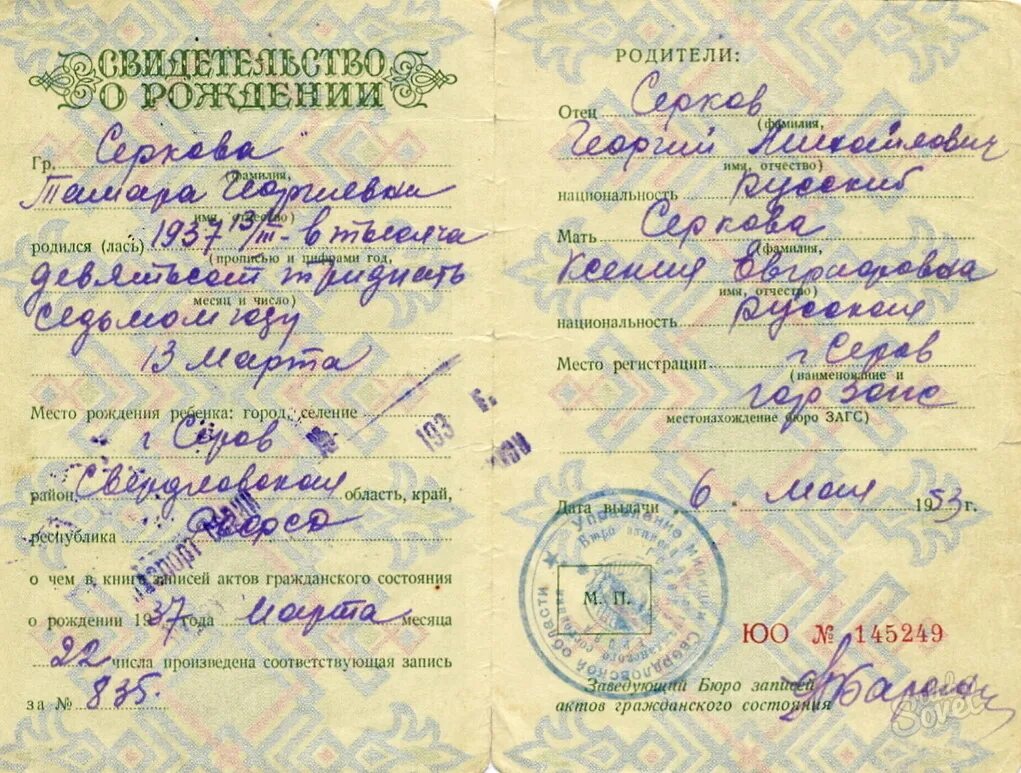 СВИДЕТЕЛЬСТВО
О РОЖДЕНИИ
Гр. Серкова
(фамилия,
Тамара Георгиевна
имя, отчество)
родился (лась) 1937 13/III - в тысяча
(прописью и цифрами год,
девятьсот тридцать
месяц и число)
седьмом году
13 марта
Место рождения ребенка: город, селение
г Серов
район, Свердловская область, край,
республика
о чем в книге записей актов гражданского состояния
о рождении 1937 года марта месяца
22 числа произведена соответствующая запись
за № 835.
РОДИТЕЛИ:
Отец Серков
(фамилия,
Георгий Михайлович
имя, отчество)
национальность русский
Мать Серкова
(фамилия,
Ксения Евграфовна
имя, отчество)
национальность русская
Место регистрации г Серов
(наименование и
гор Загс
местонахождение бюро ЗАГС)
Дата выдачи 6 мая 1953 г.
Управление Милиции Свердловской области
М. П.
ЮО № 145249
Заведующий Бюро записей
актов гражданского состояния
Sovet